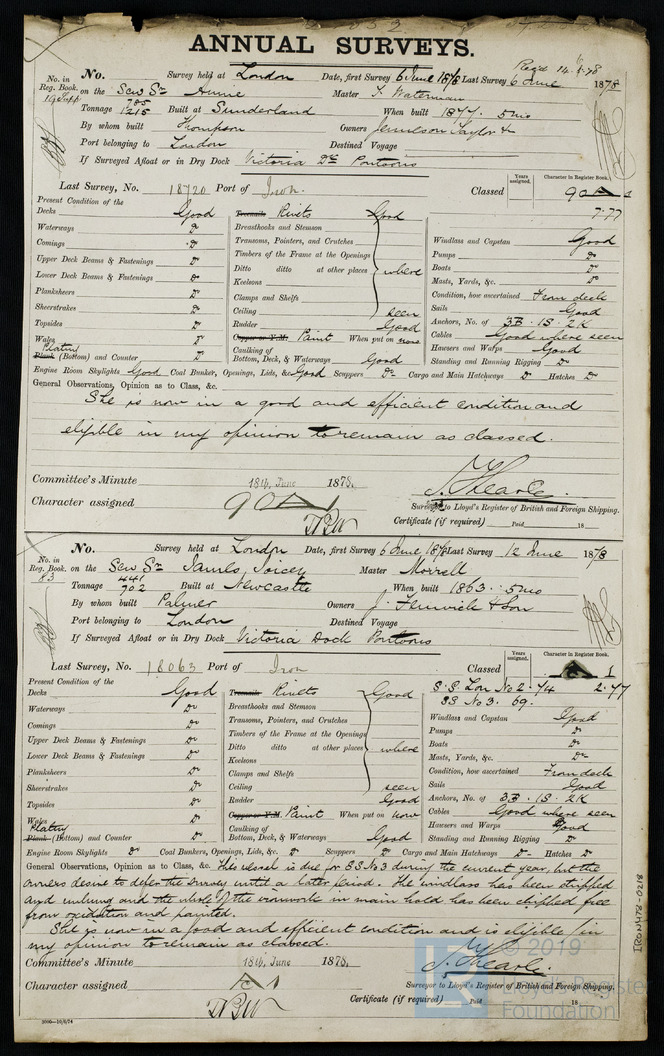 ANNUAL SURVEYS.
Recd 14.6.78
No. in Reg. Book. No. Survey held at London Date, first Survey 6 June 1878 Last Survey 6 June 1878
19 Supp on the Scw Sr Annie Master T. Waterman
Tonnage 785 1215 Built at Sunderland When built 1877. 5mo
By whom built Thompson Owners Jamieson Taylor &
Port belonging to London Destined Voyage
If Surveyed Afloat or in Dry Dock Victoria Dk Pontoons
Last Survey, No. 18720 Port of Iron. Classed Years assigned. Character in Register Book. 90A 1
7.77
Present Condition of the
Decks Good Treenails Rivets Good
Waterways Do Breasthooks and Stemson Windlass and Capstan Good
Comings Do Transoms, Pointers, and Crutches Pumps Do
Upper Deck Beams & Fastenings Do Timbers of the Frame at the Openings Boats Do
Lower Deck Beams & Fastenings Do Ditto ditto at other places where Masts, Yards, &c. Do
Planksheers Do Keelsons Condition, how ascertained From deck
Sheerstrakes Do Clamps and Shelfs Sails Good
Topsides Do Ceiling seen Anchors, No. of 3B. 1S. 2K
Wales Do Rudder Good Cables Good where seen
Plating Plank (Bottom) and Counter Do Copper or Y.M. Paint When put on now Hawsers and Warps Good
Caulking of Bottom, Deck, & Waterways Good Standing and Running Rigging Do
Engine Room Skylights Good Coal Bunker, Openings, Lids, &c. Good Scuppers Do Cargo and Main Hatchways Do Hatches Do
General Observations, Opinion as to Class, &c.
She is now in a good and efficient condition and
eligible in my opinion to remain as classed.
Committee's Minute 18th June 1878.
Character assigned 90A 1
Surveyor to Lloyd's Register of British and Foreign Shipping.
Certificate (if required) Paid 18
No. in Reg. Book. No. Survey held at London Date, first Survey 6 June 1878 Last Survey 12 June 1878
83 on the Scw Sr James Joicey Master Morrell
Tonnage 441 702 Built at Newcastle When built 1863. 5mo
By whom built Palmer Owners J. Fenwick & Son
Port belonging to London Destined Voyage
If Surveyed Afloat or in Dry Dock Victoria Dock Pontoons
Last Survey, No. 18063 Port of Iron Classed Years assigned. Character in Register Book. A 1
S.S Lon No 2. 74 2.77
SS No 3. 69.
Present Condition of the
Decks Good Treenails Rivets Good
Waterways Do Breasthooks and Stemson Windlass and Capstan Good
Comings Do Transoms, Pointers, and Crutches Pumps Do
Upper Deck Beams & Fastenings Do Timbers of the Frame at the Openings Boats Do
Lower Deck Beams & Fastenings Do Ditto ditto at other places where Masts, Yards, &c. Do
Planksheers Do Keelsons Condition, how ascertained From deck
Sheerstrakes Do Clamps and Shelfs Sails Good
Topsides Do Ceiling seen Anchors, No. of 3B. 1S. 2K
Wales Do Rudder Good Cables Good where seen
Plating Plank (Bottom) and Counter Do Copper or Y.M. Paint When put on now Hawsers and Warps Good
Caulking of Bottom, Deck, & Waterways Good Standing and Running Rigging Do
Engine Room Skylights Do Coal Bunkers, Openings, Lids, &c. Do Scuppers Do Cargo and Main Hatchways Do Hatches Do
General Observations, Opinion as to Class, &c. This vessel is due for SS No 3 during the current year, but the
owners desire to defer the survey until a later period. The windlass has been stripped
and unhung and the whole of the ironwork in main hold has been chipped free
from oxidation and painted.
She is now in a good and efficient condition and is eligible in
my opinion to remain as classed.
Committee's Minute 18th June 1878.
Character assigned A 1
Surveyor to Lloyd's Register of British and Foreign Shipping.
Certificate (if required) Paid 18
IRON478-0218
© 2019
Lloyd's Register
Foundation